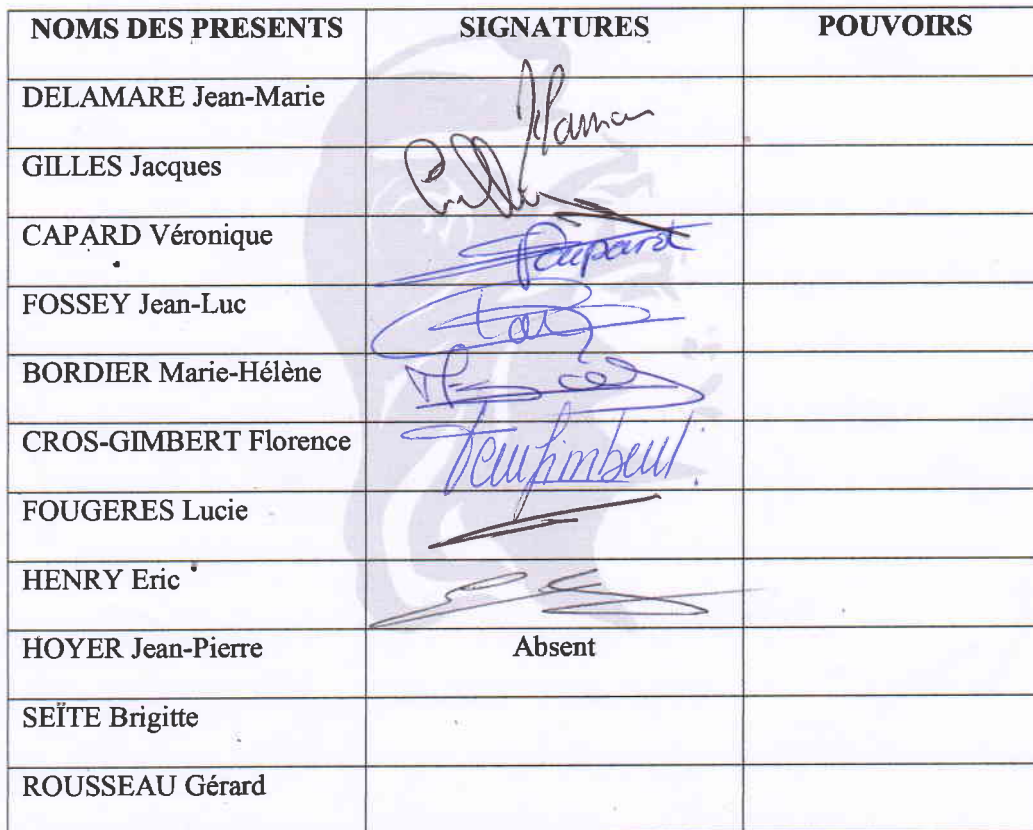 NOMS DES PRESENTS SIGNATURES POUVOIRS
DELAMARE Jean-Marie
GILLES Jacques
CAPARD Véronique
FOSSEY Jean-Luc
BORDIER Marie-Hélène
CROS-GIMBERT Florence
FOUGERES Lucie
HENRY Eric
HOYER Jean-Pierre Absent
SEÏTE Brigitte
ROUSSEAU Gérard